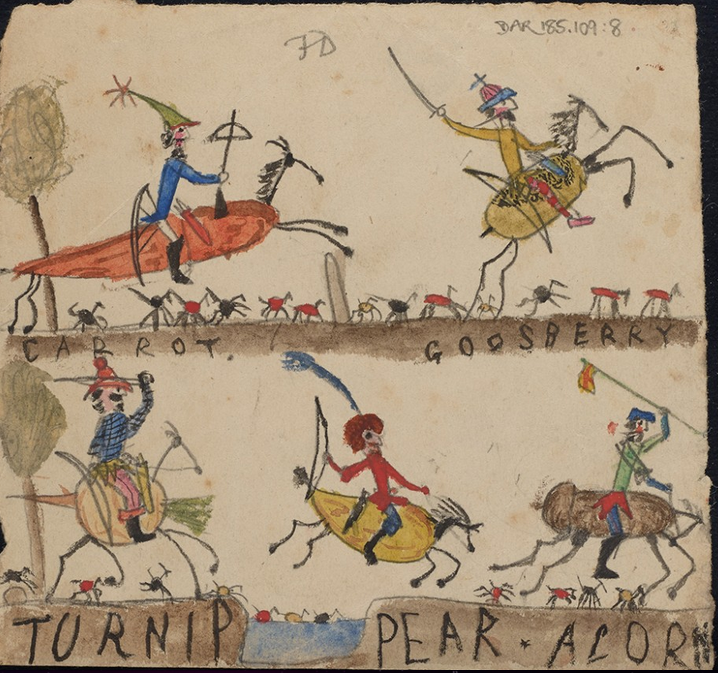 FD
DAR 185.109:8
CARROT. GOOSBERRY
TURNIP PEAR . ACORN